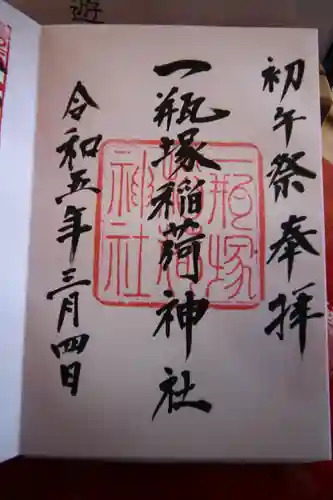 初午祭奉拝
一瓶塚稲荷神社
令和五年三月四日
一瓶塚
稲荷
神社
遊